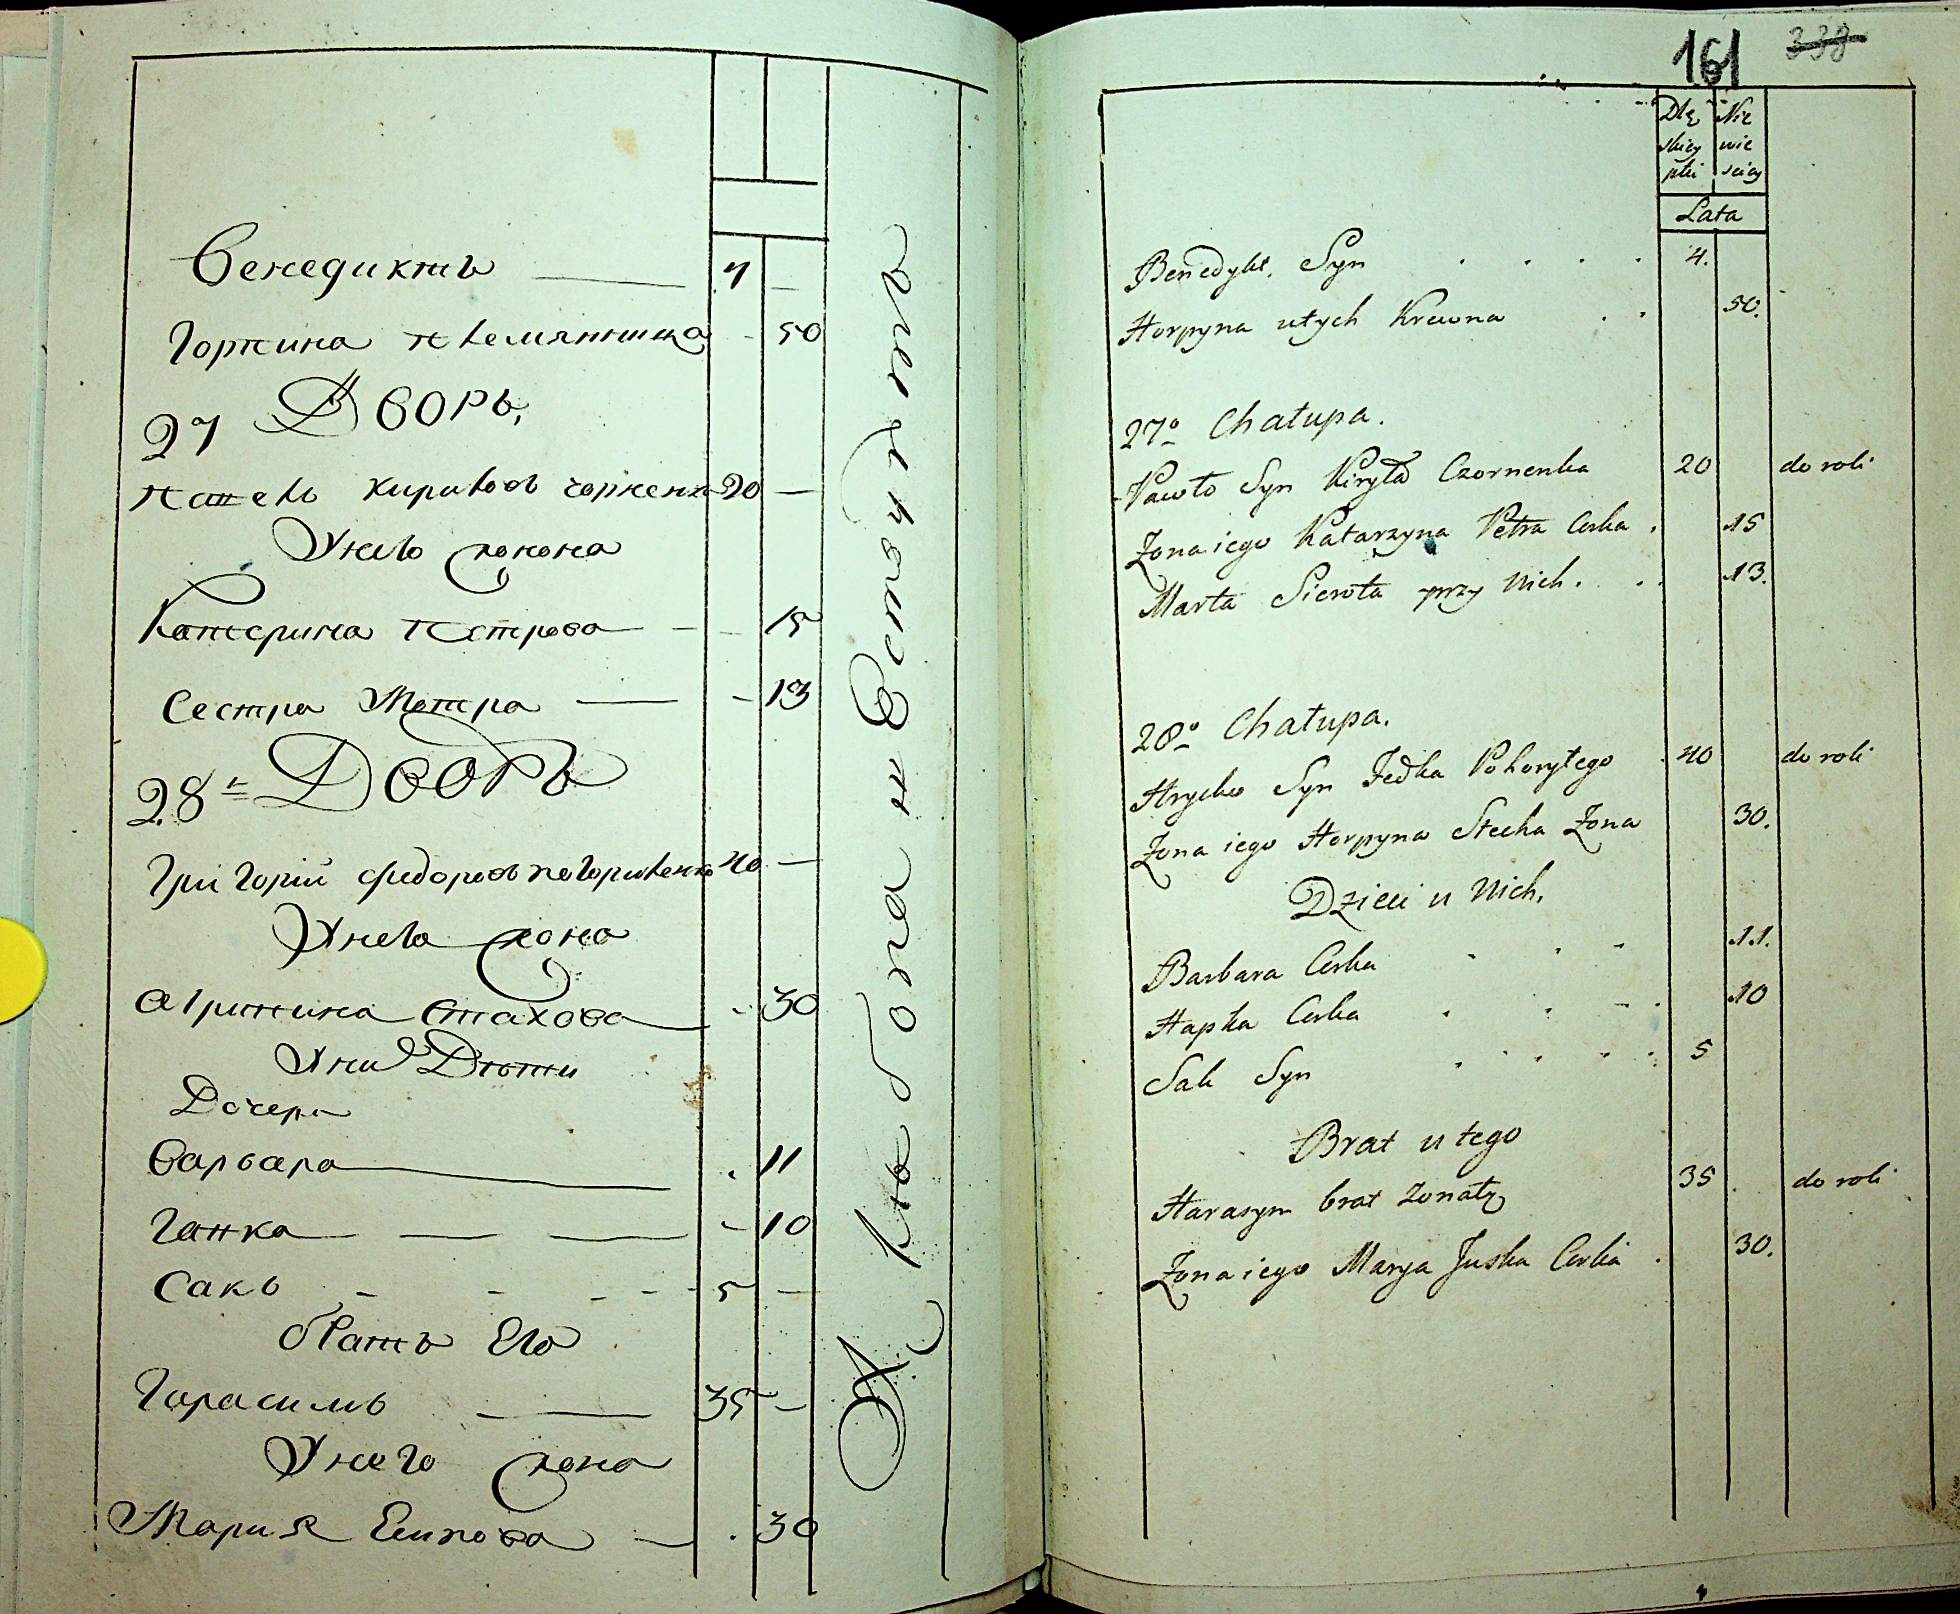 Венедиктъ 4
Горпина племянница 50
27 Дворъ,
Павелъ Кириловъ Чорненко 20
У него жона
Катерина Петрова 15
Сестра Мотра 13
28й Дворъ
Григорій Федоровъ Погориленко 40
У него жона
Агрипина Стахова 30
У ни Дѣти
Дочери
Варвара 11
Ганка 10
Сакъ 5
братъ Его
Гарасимъ 35
У него жона
Мария Есипова 30
161 338
Dłę Nie
skiey wie
płci sciey
Lata
Benedykt. Syn 4.
Horpyna utych Krewna 50.
27o Chałupa.
Pawło Syn Kiryła Czornenka 20 do roli
Zona iego Katarzyna Petra Corka 15
Marta Sierota przy nich. 13.
28o Chałupa.
Hrycko Syn Fedka Pohoryłego 40 do roli
Zona iego Horpyna Stecha Zona 30.
Dzieci u nich.
Barbara Corka 11.
Hapka Corka 10
Sak Syn 5
Brat u tego
Harasym brat zonaty 35 do roli
Zona iego Marya Juska Corka 30.